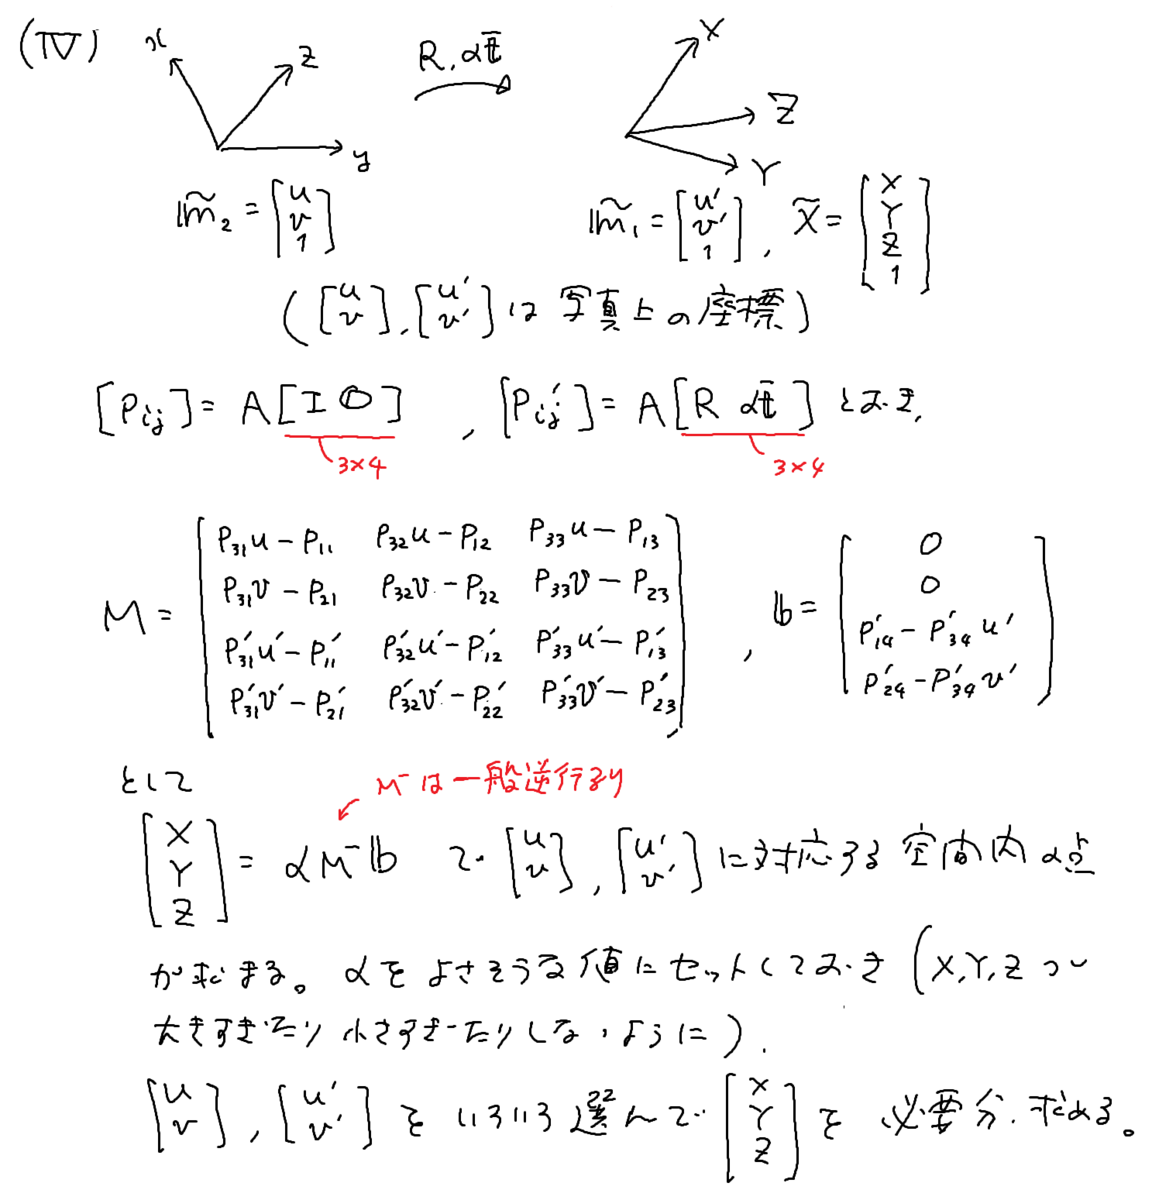 (IV) x z y R, αt̄ X Z Y
m̃₂ = [u v 1] m̃₁ = [u' v' 1], X̃ = [X Y Z 1]
([u v], [u' v'] は 写真上の座標)
[Pij] = A[I O], [P'ij] = A[R αt̄] とおき,
3×4 3×4
M = [P₃₁u − P₁₁ P₃₂u − P₁₂ P₃₃u − P₁₃
P₃₁v − P₂₁ P₃₂v − P₂₂ P₃₃v − P₂₃
P'₃₁u' − P'₁₁ P'₃₂u' − P'₁₂ P'₃₃u' − P'₁₃
P'₃₁v' − P'₂₁ P'₃₂v' − P'₂₂ P'₃₃v' − P'₂₃]
, b = [0
0
P'₁₄ − P'₃₄u'
P'₂₄ − P'₃₄v']
として
M⁻は一般逆行列
[X Y Z] = αM⁻b で [u v], [u' v'] に対応する空間内の点
が求まる。αをよさそうな値にセットしておき (X,Y,Zが
大きすぎたり小さすぎたりしないように).
[u v], [u' v'] をいろいろ選んで [X Y Z] を必要分求める。